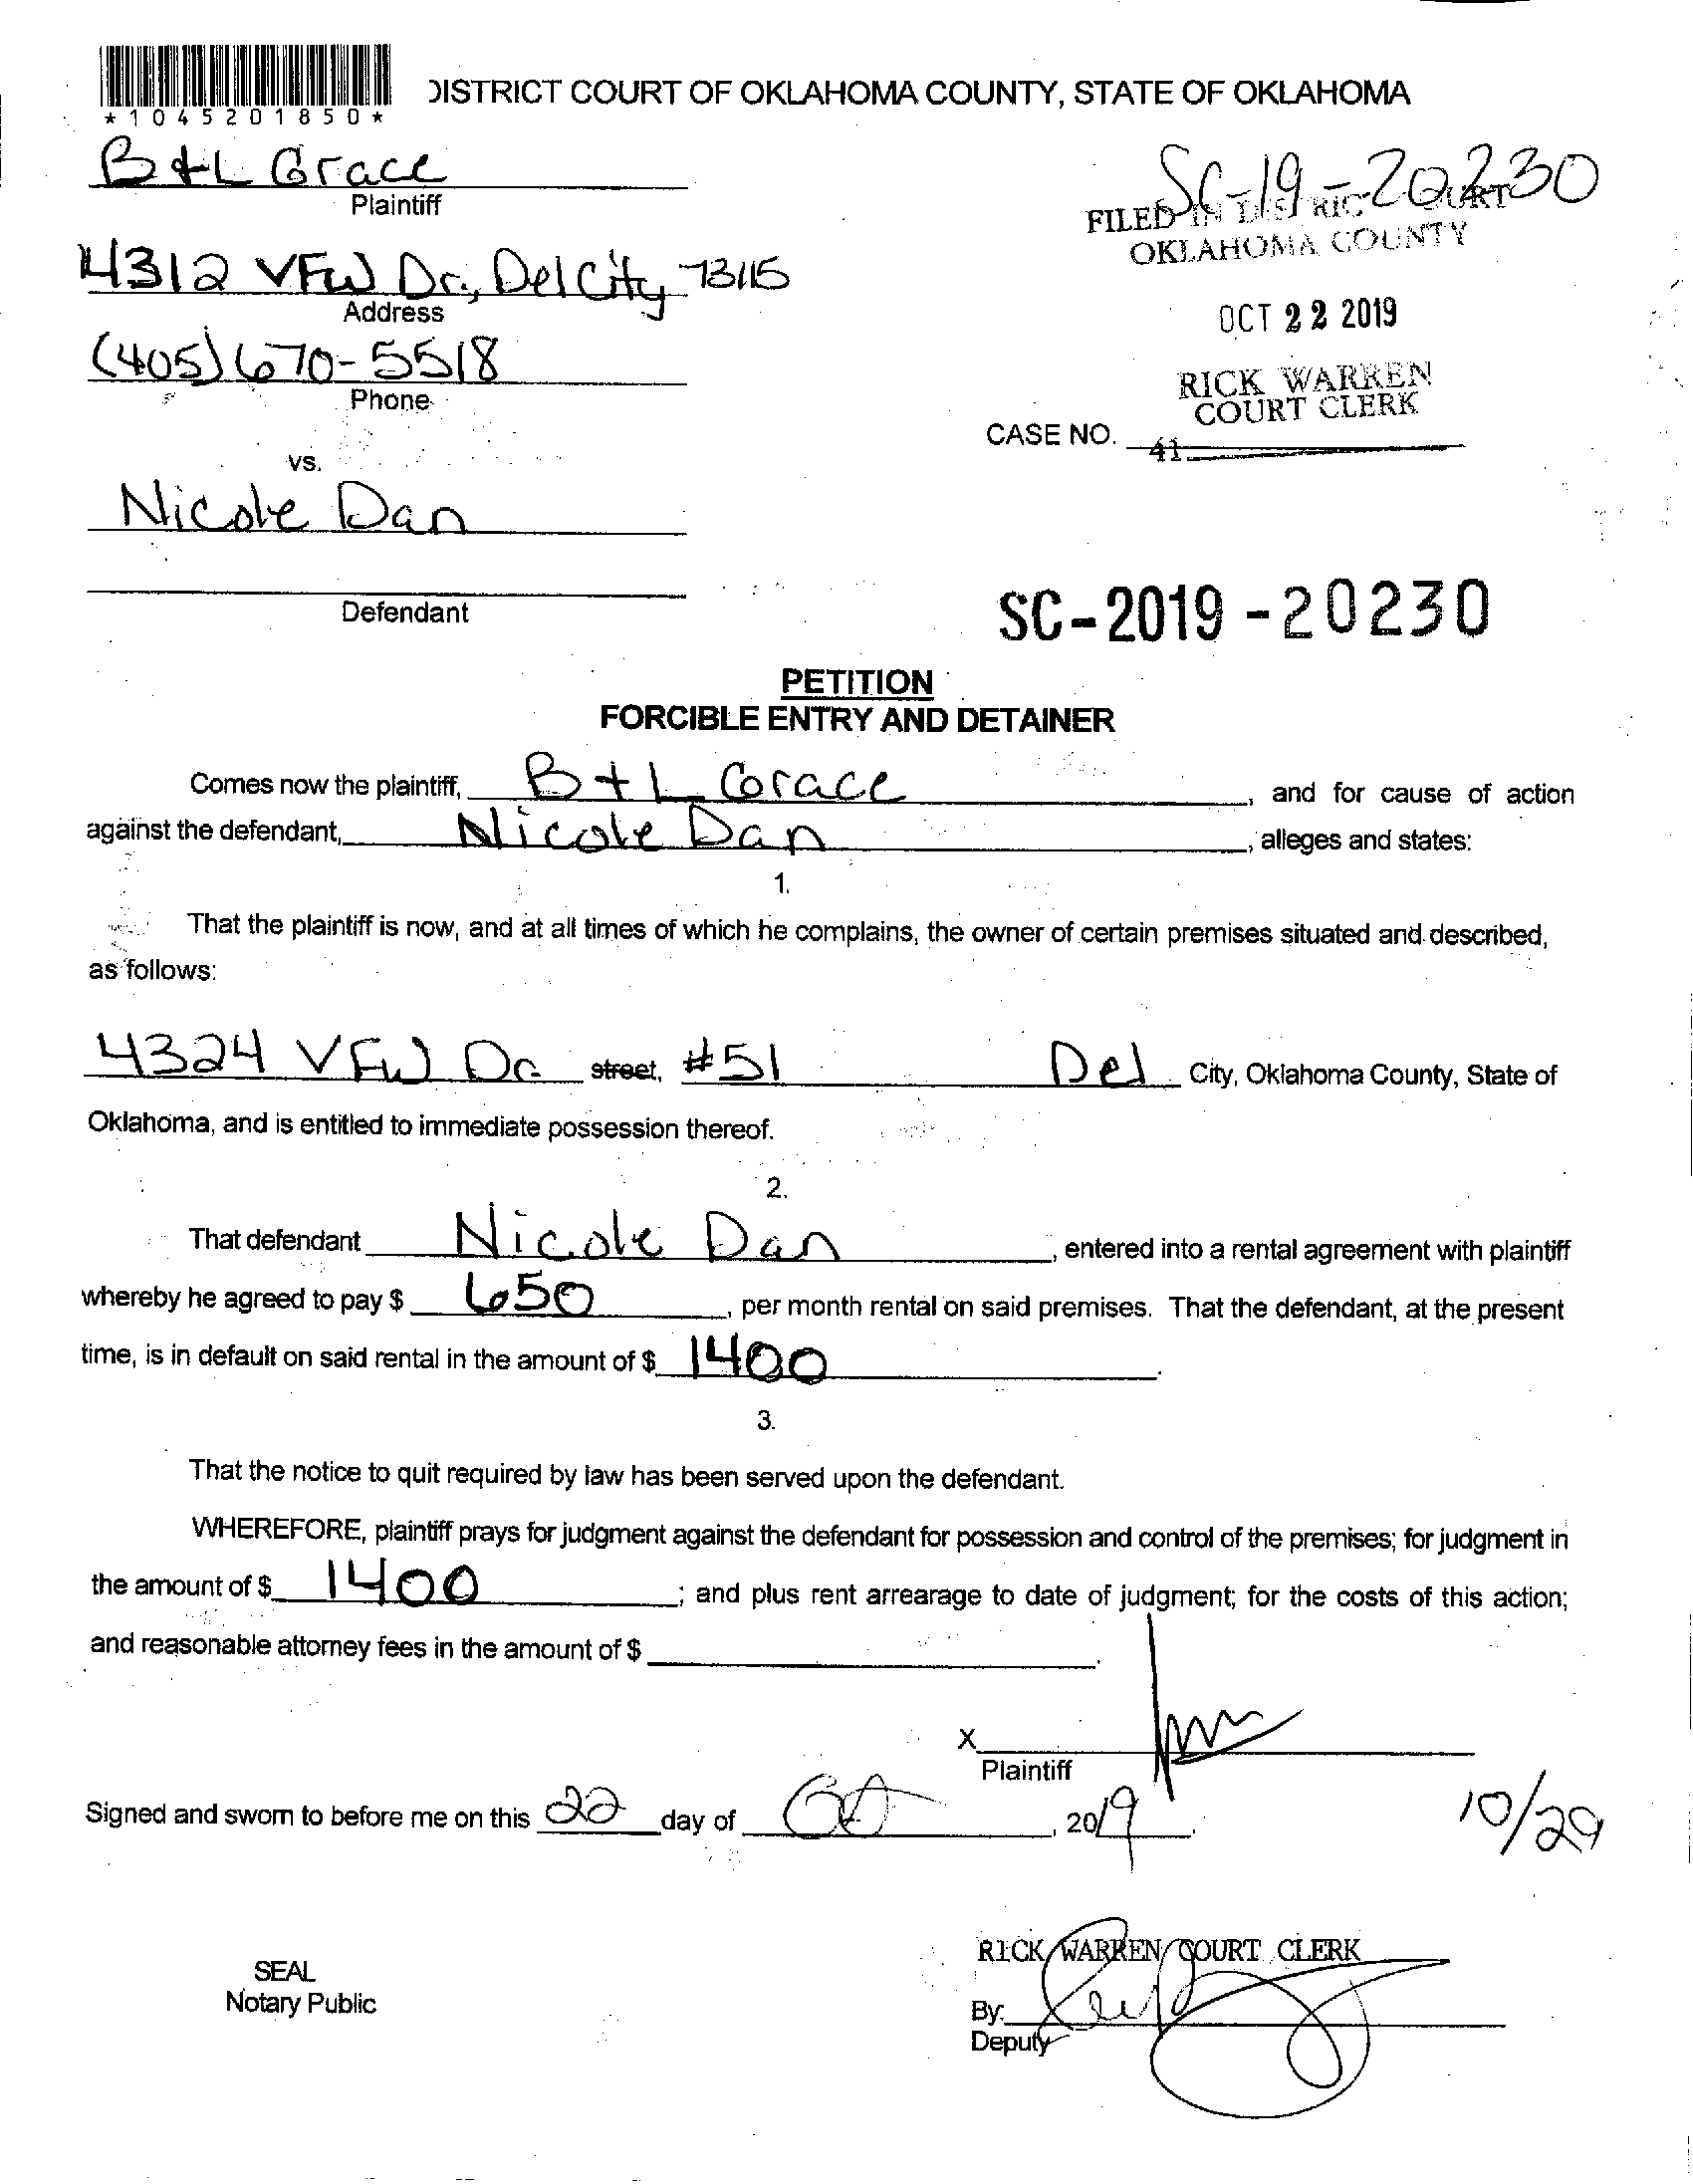 *1045201850*
DISTRICT COURT OF OKLAHOMA COUNTY, STATE OF OKLAHOMA
B+L Grace
Plaintiff
SC-19-20230
FILED IN DISTRICT COURT
OKLAHOMA COUNTY
4312 VFW Dr., Del City 73115
Address
OCT 22 2019
(405) 670-5518
Phone
RICK WARREN
COURT CLERK
CASE NO. 41
vs.
Nicole Dan
Defendant
SC-2019-20230
PETITION
FORCIBLE ENTRY AND DETAINER
Comes now the plaintiff, B+L Grace, and for cause of action
against the defendant, Nicole Dan, alleges and states:
1.
That the plaintiff is now, and at all times of which he complains, the owner of certain premises situated and described,
as follows:
4324 VFW Dr. street, #51 Del City, Oklahoma County, State of
Oklahoma, and is entitled to immediate possession thereof.
2.
That defendant Nicole Dan, entered into a rental agreement with plaintiff
whereby he agreed to pay $ 650, per month rental on said premises. That the defendant, at the present
time, is in default on said rental in the amount of $ 1400.
3.
That the notice to quit required by law has been served upon the defendant.
WHEREFORE, plaintiff prays for judgment against the defendant for possession and control of the premises; for judgment in
the amount of $ 1400; and plus rent arrearage to date of judgment; for the costs of this action;
and reasonable attorney fees in the amount of $ .
X
Plaintiff
Signed and sworn to before me on this 22 day of Oct, 2019.
10/29
RICK WARREN COURT CLERK
SEAL
Notary Public
By:
Deputy